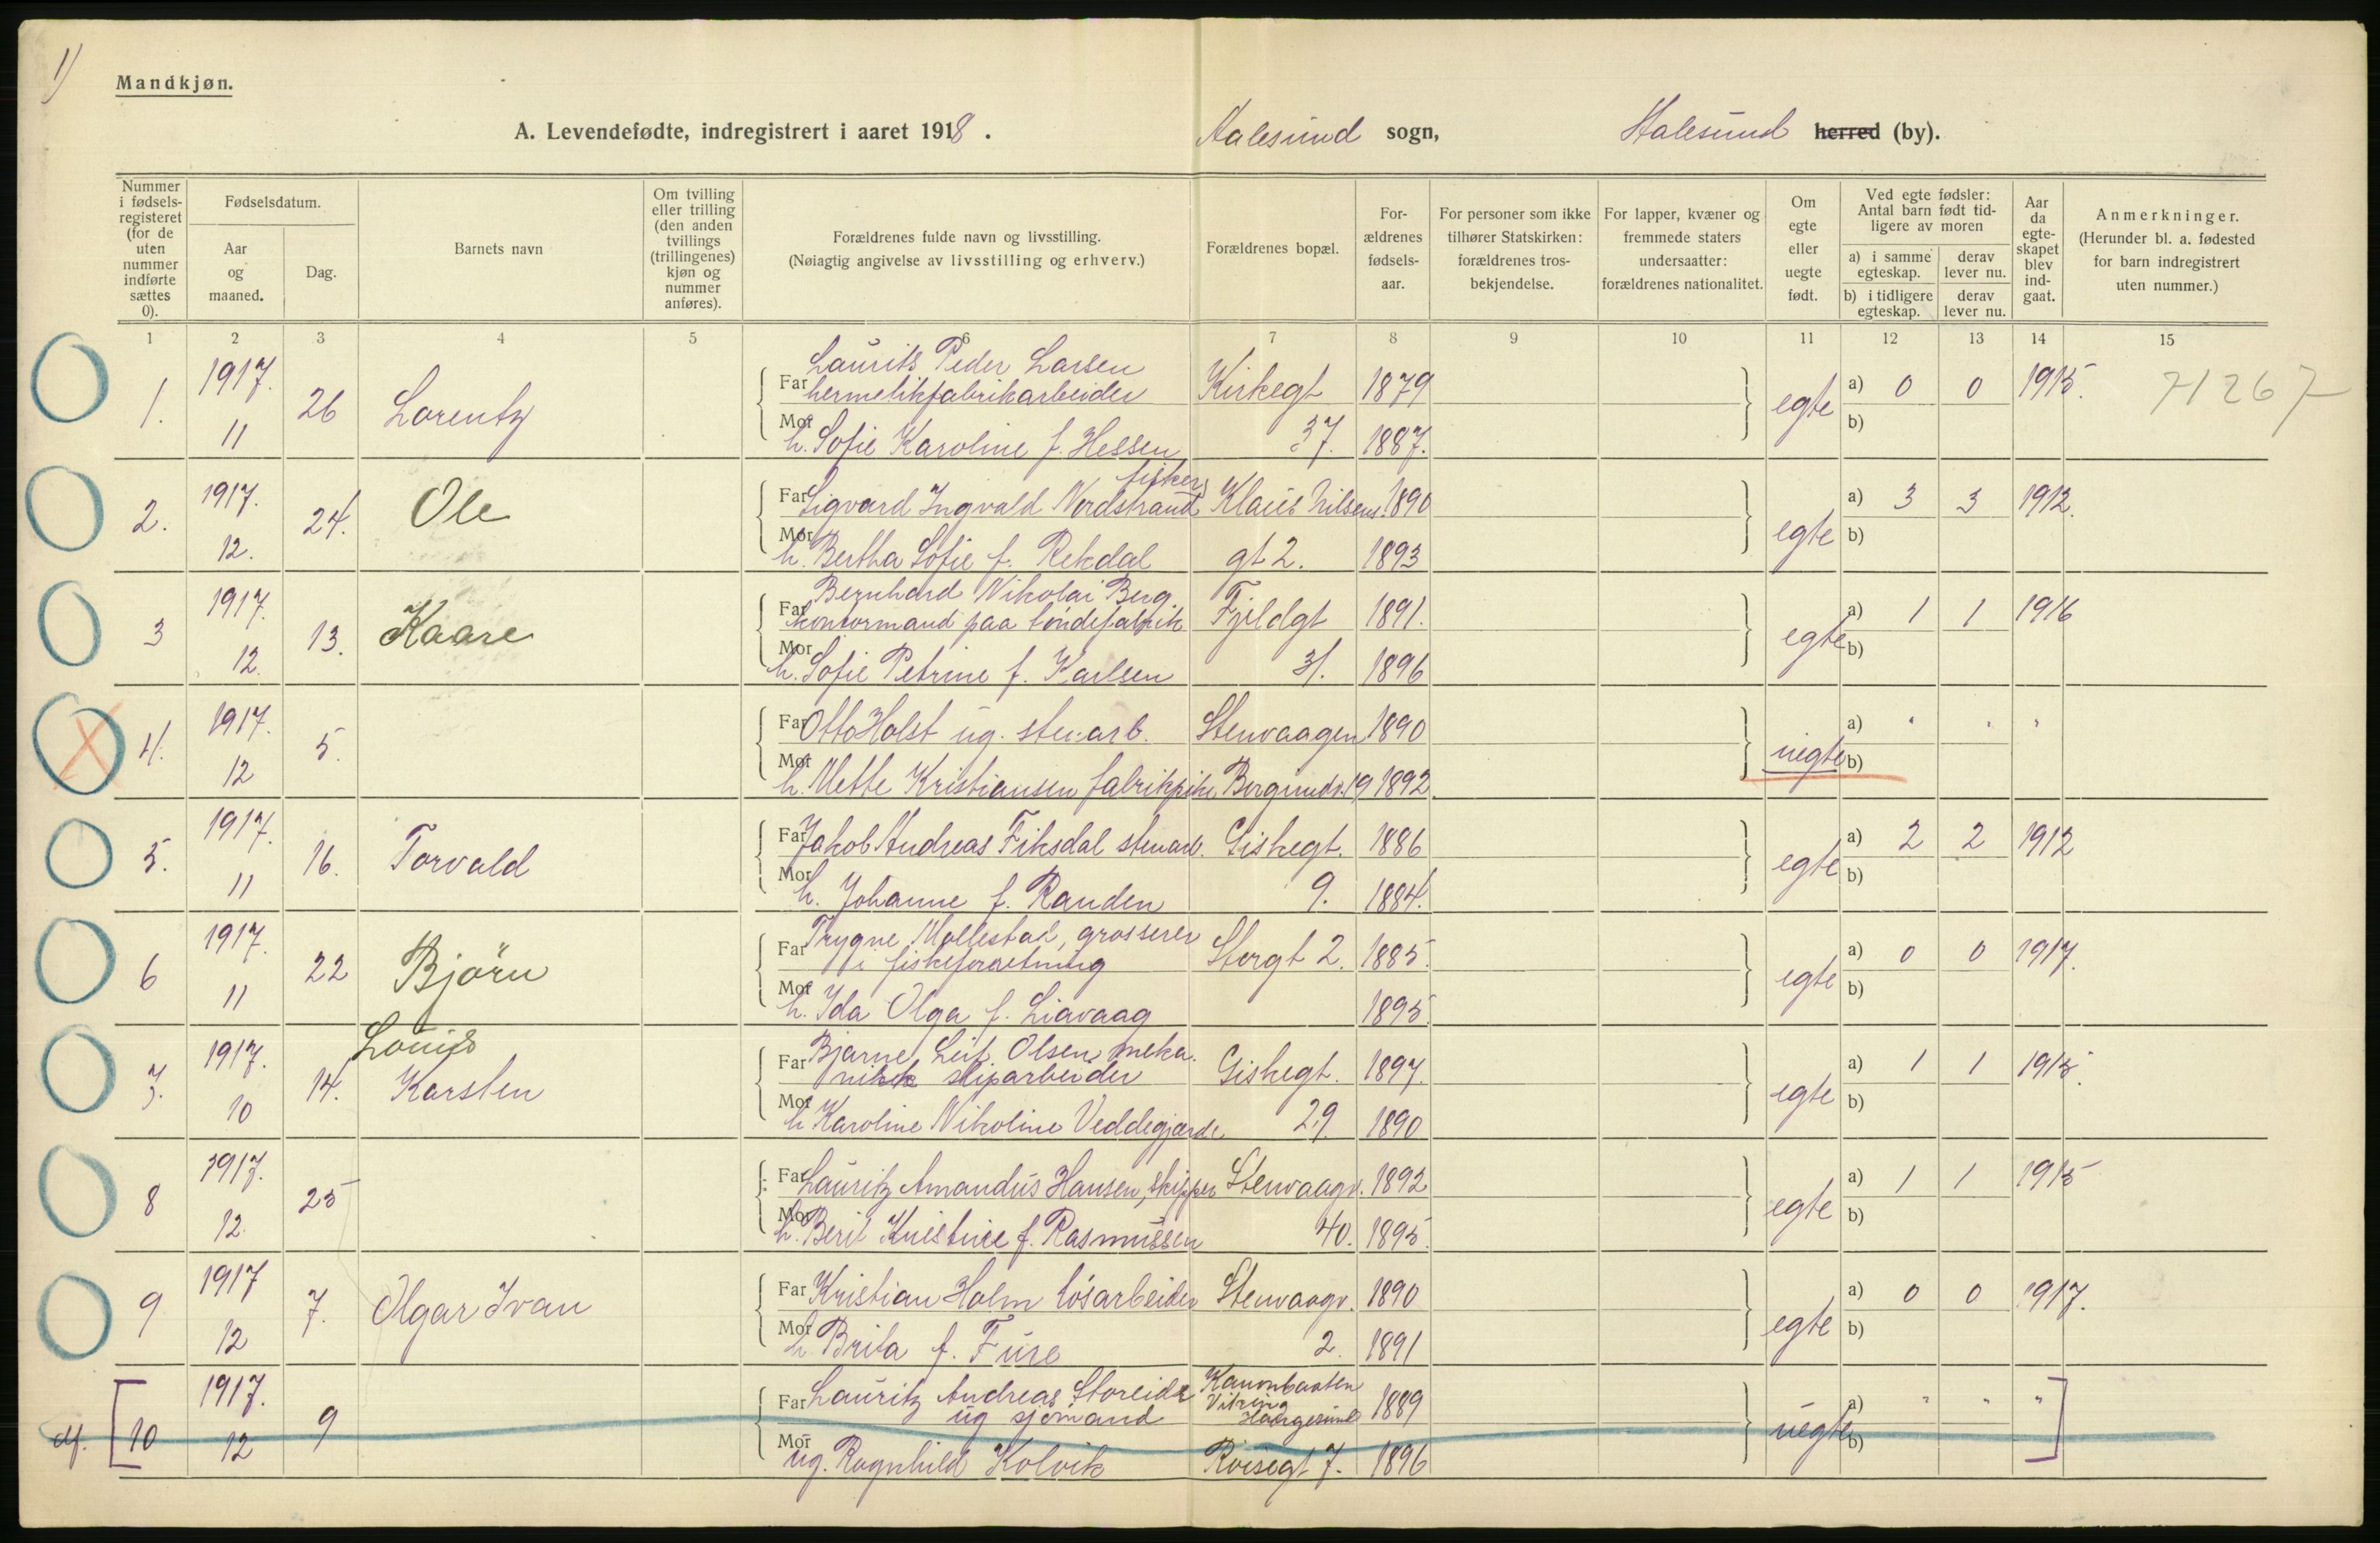 1)
Mandkjøn.
A. Levendefødte, indregistrert i aaret 1918. Aalesund sogn, Aalesund herred (by).
Nummer i fødsels-registeret (for de uten nummer indførte sættes 0).
Fødselsdatum.
Aar og maaned.
Dag.
Barnets navn
Om tvilling eller trilling (den anden tvillings (trillingenes) kjøn og nummer anføres).
Forældrenes fulde navn og livsstilling.
(Nøiagtig angivelse av livsstilling og erhverv.)
Forældrenes bopæl.
For-ældrenes fødsels-aar.
For personer som ikke tilhører Statskirken: forældrenes tros-bekjendelse.
For lapper, kvæner og fremmede staters undersaatter: forældrenes nationalitet.
Om egte eller uegte født.
Ved egte fødsler: Antal barn født tid-ligere av moren
a) i samme egteskap.
derav lever nu.
b) i tidligere egteskap.
derav lever nu.
Aar da egte-skapet blev ind-gaat.
Anmerkninger.
(Herunder bl. a. fødested for barn indregistrert uten nummer.)
1 2 3 4 5 6 7 8 9 10 11 12 13 14 15
Laurits Peder Larsen
1. 1917. 26 Lorentz Far hermetikfabrikarbeider Kirkegt 1879 egte a) 0 0 1915. 71267
11 Mor h. Sofie Karoline f. Hessen 37. 1887. b)
fisker
2. 1917. 24. Ole Far Sigvard Ingvald Nordstrand Klaus Nilsens 1890 egte a) 3 3 1912.
12. Mor h. Bertha Sofie f. Rekdal gt 2. 1893 b)
Bernhard Nikolai Berg
3 1917. 13. Kaare Far kontormand paa töndefabrik Fjeldgt 1891. egte a) 1 1 1916
12. Mor h. Sofie Petrine f. Karlsen 31. 1896 b)
4. 1917. 5. Far Otto Holst ug. stenarb. Stenvaagen 1890 uegte a) " " "
12 Mor h. Mette Kristiansen fabrikpike 19 1892 b)
5. 1917. 16. Torvald Far Jakob Andreas Fiksdal stenarb. Giskegt. 1886 egte a) 2 2 1912
11 Mor h. Johanne f. Randen 9. 1884. b)
Trygve Mollestad, grosserer
6 1917. 22 Björn Far i fiskeforretning Storgt 2. 1885. egte a) 0 0 1917.
11 Mor h. Ida Olga f. Liavaag 1895. b)
Louis Bjarne Leif Olsen, meka.
7. 1917. 14. Karsten Far nisk sliparbeider Giskegt. 1897. egte a) 1 1 1915.
10 Mor h. Karoline Nikoline Veddegjærde 29. 1890 b)
8 1917. 25 Far Lauritz Amandus Hansen, skipper Stenvaagv. 1892 egte a) 1 1 1915
12. Mor h. Berit Kristine f. Rasmussen 40. 1895. b)
9 1917 7. Olgar Ivan Far Kristian Holm lösarbeider Stenvaagv. 1890 egte a) 0 0 1917.
12 Mor h. Brita f. Fure 2. 1891 b)
Lauritz Andreas Storeide Kanonbaaten
10 1917. 9 Far ug sjömand Haugesund 1889 uegte a) " " "
12 Mor ug. Ragnhild Kolvik Røisegt 7. 1896 b)